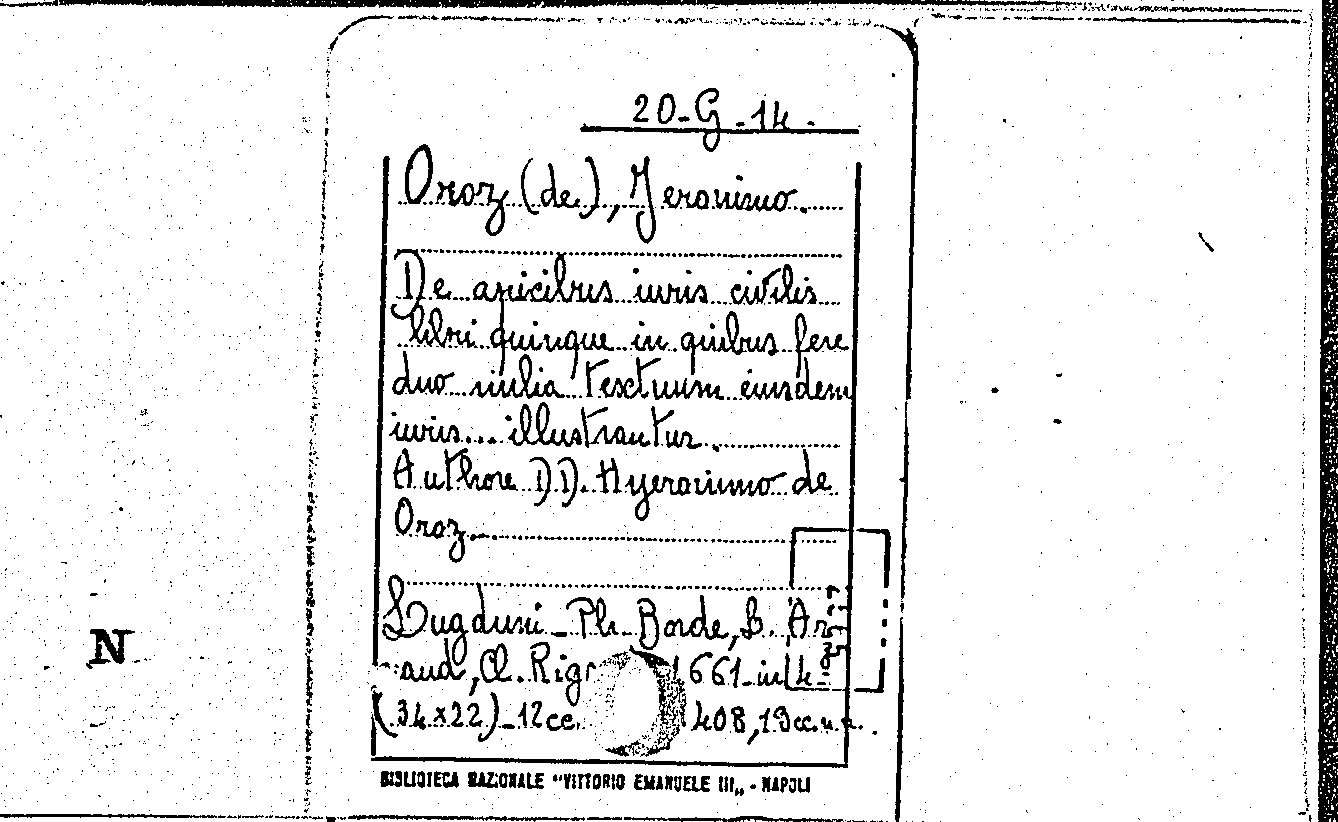 20-G-14.
Oroz (de), Jeronimo.
De apicibus iuris civilis
libri quinque in quibus fere
duo milia textuum eiusdem
iuris... illustrantur.
Authore D.D. Hyeronimo de
Oroz...
Lugduni - Ph. Borde, L. Ar
aud, Cl. Rig 1661 - in 4°
(34x22) - 12cc. 408, 19cc.n.n.
N
BIBLIOTECA NAZIONALE "VITTORIO EMANUELE III„ - NAPOLI